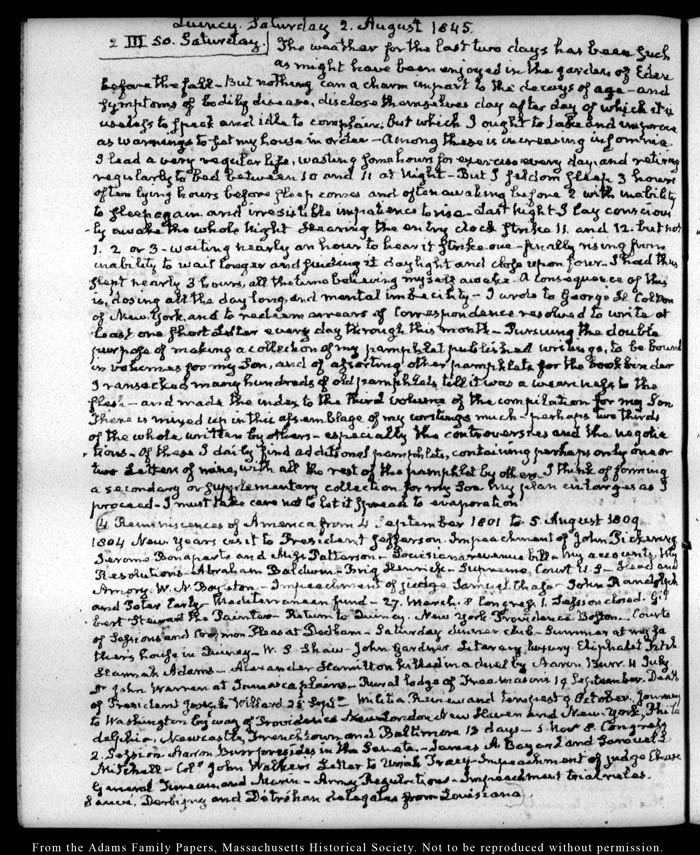 Quincy. Saturday 2. August 1845.
2 III 50. Saturday. The weather for the last two days has been such
as might have been enjoyed in the garden of Eden
before the fall - But nothing can a charm impart to the decays of age - and
symptoms of bodily disease, disclose themselves day after day of which it is
useless to speak and idle to complain; but which I ought to take and improve
as warnings to set my house in order - Among these is increasing insomnia
I lead a very regular life, wasting some hours for exercise every day, and retiring
regularly to bed between 10 and 11 at Night - But I seldom sleep 3 hours
often lying hours before sleep comes and often awaking before 2 with inability
to sleep again and irresistible impatience to rise - Last Night I lay conscious
-ly awake the whole Night hearing the entry clock strike 11. and 12. but not
1. 2 or 3 - waiting nearly an hour to hear it strike one - finally rising from
inability to wait longer and finding it daylight and close upon four. I had thus
slept nearly 3 hours, all the time believing myself awake - A consequence of this
is, dosing all the day long, and mental imbecility - I wrote to George H. Colton
of New-York, and to redeem arrears of correspondence resolved to write at
least one short Letter every day through this month - Pursuing the double
purpose of making a collection of my pamphlet published writings, to be bound
in volumes for my Son, and of assorting other pamphlets for the bookbinder
I ransacked many hundreds of old pamphlets till it was a weariness to the
flesh - and made the index to the third volume of the compilation for my Son
There is mixed up in this assemblage of my writings much - perhaps two thirds
of the whole written by others - especially the controversies and the negotia
-tions - Of these I daily find additional pamphlets, containing perhaps only one or
two Letters of mine, with all the rest of the pamphlet by others. I think of forming
a secondary or supplementary collection for my Son. My plan enlarges as I
proceed - I must take care not to let it spread to evaporation.
(4 Reminiscences of America from 4 September 1801 to 5. August 1809
1804 New Years visit to President Jefferson. Impeachment of John Pickering
Jerome Bonaparte and Miss Patterson - Louisiana revenue bill - my accounts. My
Resolutions - Abraham Baldwin - Brig Henrick - Supreme Court U.S - Head and
Amory. W. N Boylston - Impeachment of judge Samuel Chase - John Randolph
and Peter Early - Mediterranean fund - 27. March. 8 Congress 1. Session closed. Gil
bert Stewart the Painter - Return to Quincy. New York Providence Boston - Courts
of Sessions and Common Pleas at Dedham - Saturday dinner club - Summer at my fa
ther's house in Quincy - W. S Shaw - John Gardner Literary luxury Eliphalet
Hannah Adams - Alexander Hamilton killed in a duel by Aaron Burr. 4 July
Dr John Warren at Jamaica plains - Rural lodge of Free-masons 19 September. Death
of President Joseph Willard 25 Septr - Militia Review and tempest 9 October. Journey
to Washington by way of Providence New London New Haven and New-York, Phila
delphia. Newcastle, Frenchtown and Baltimore 13 days - 5 Novr 8. Congress
2. Session Aaron Burr presides in the Senate - James A Bayard and Samuel L.
Mitchell - Coll. John Walker's Letter to Uriah Tracy - Impeachment of judge Chase
General Tureau, and Marin - Army Regulations - Impeachment trial rules.
Sauvé, Derbigny and Detréhan delegates from Louisiana)
From the Adams Family Papers, Massachusetts Historical Society. Not to be reproduced without permission.